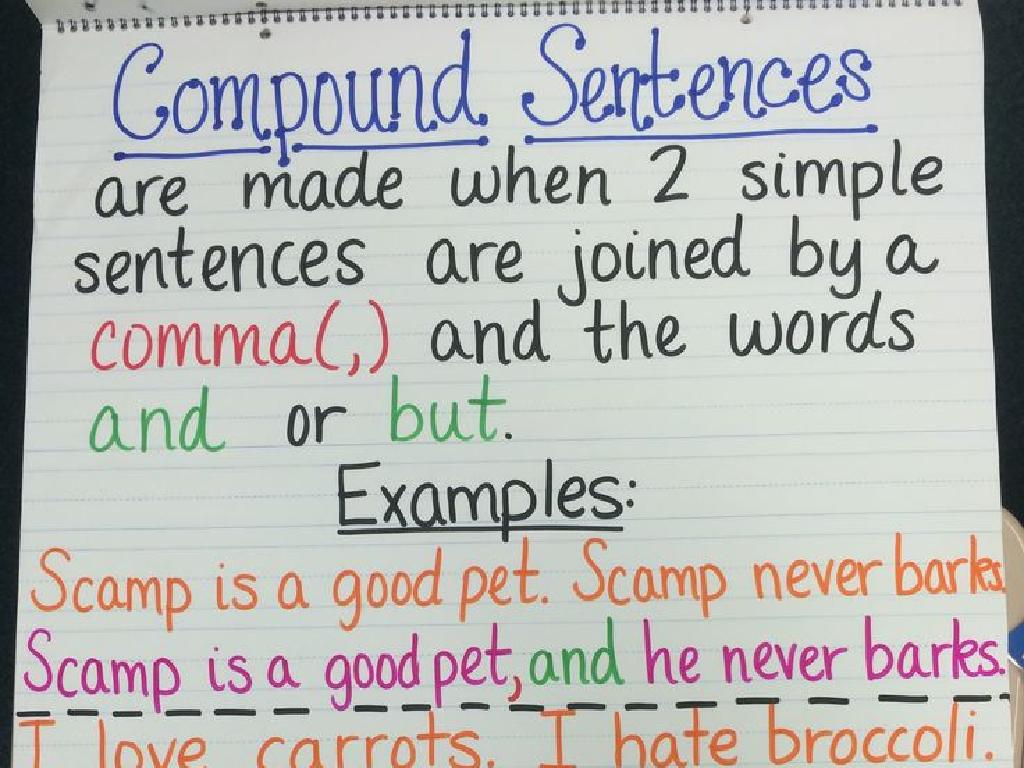 Compound Sentences
are made when 2 simple
sentences are joined by a
comma(,) and the words
and or but.
Examples:
Scamp is a good pet. Scamp never barks.
Scamp is a good pet, and he never barks.
I love carrots. I hate broccoli.